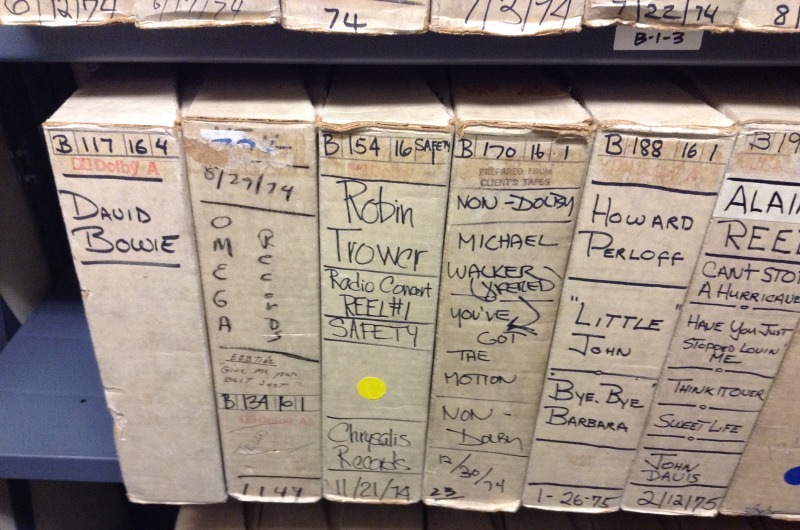 6/12/74
74
7/3/74
7/22/74
B-1-3
8/
B 117 16 4
Dolby A
DAVID
BOWIE
8/29/74
OMEGA
Records
EBBTIDE
Give me your
Best Shot
B 134 16 1
B 154 16 SAFETY
Robin
Trower
Radio Concert
REEL #1
SAFETY
Chrysalis
Records
11/21/74
B 170 16 1
PREPARED FROM
CLIENT'S TAPES
NON-DOLBY
MICHAEL
WALKER
YOU'VE
GOT
THE
MOTION
NON-
DOLBY
12/30/74
23
B 188 16 1
HOWARD
PERLOFF
"LITTLE"
JOHN
"BYE, BYE"
BARBARA
1-26-75
B 19
ALAI
REE
CAN'T STO
A HURRICANE
HAVE YOU JUST
STOPPED LOVIN'
ME
THINK IT OVER
SWEET LIFE
JOHN
DAVIS
2/12/75